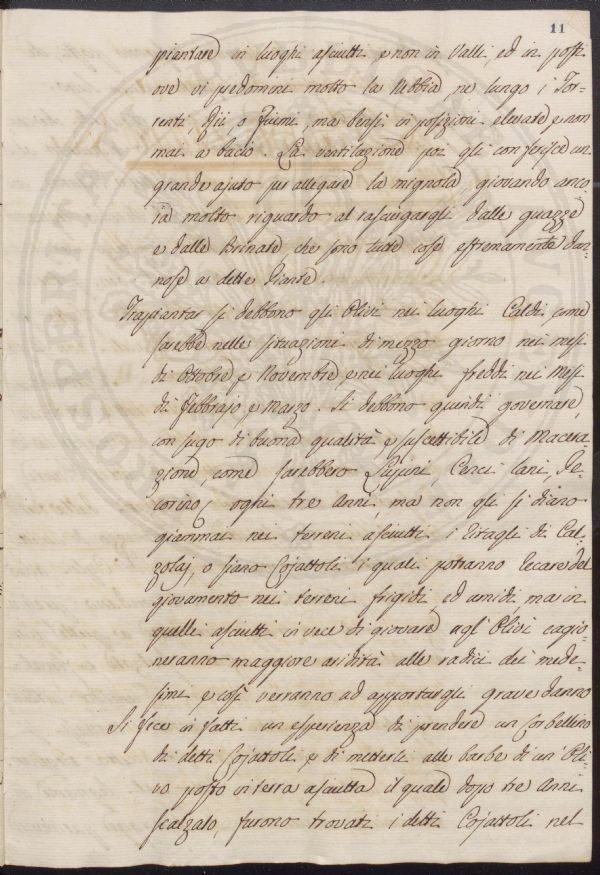 11
piantare in luoghi asciutti e non in Valli, ed in posti
ove vi predomini molto la Nebbia, ne lungo i Tor-
renti, Rii, o Fiumi, ma bensì in posizioni elevate e non
mai a bacìo. La ventilazione poi gli conferisce un
grande ajuto per allegare la mignola, giovando anco-
ra molto riguardo al rasciugargli dalle guazze
e dalle Brinate, che sono tutte cose estremamente dan-
nose a dette Piante.
Trapiantar si debbono gli Olivi nei luoghi Caldi, come
sarebbe nelle situazioni di mezzo giorno nei mesi
di Ottobre, e Novembre, e nei luoghi freddi nei Mesi
di Febbrajo, e Marzo. Si debbono quindi governare,
con sugo di buona qualità e suscettibile di Macera-
zione, come sarebbero Lupini, Cenci lani, Pe-
corino, ogni tre Anni, ma non gli si diano
giammai nei terreni asciutti i Ritagli di Cal-
zolaj, o siano Cojattoli i quali potranno recare del
giovamento nei terreni frigidi, ed umidi, ma in
quelli asciutti in vece di giovare agl'Olivi cagio-
neranno maggiore aridità alle radici dei mede-
simi e così verranno ad apportargli grave danno
Si fece in fatti un esperienza di prendere un Corbellino
di detti Cojattoli e di metterli alle barbe di un'Oli-
vo posto in terra asciutta il quale dopo tre Anni
scalzato, furono trovati i detti Cojattoli nel